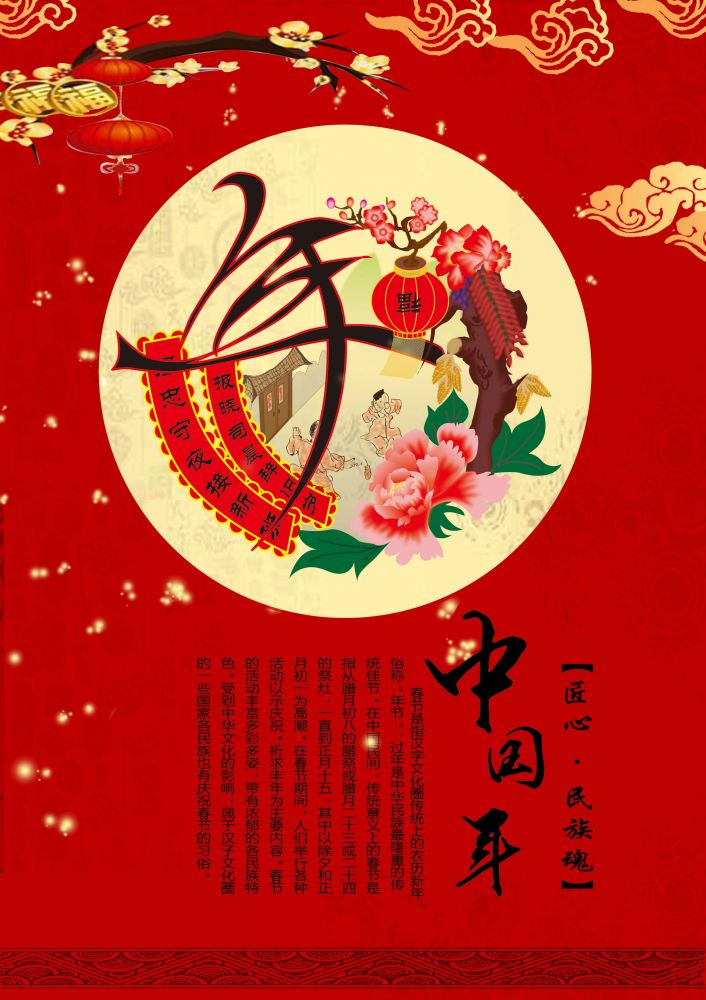 福
福
年
福
忠守夜接新
报晓司晨辞旧
【匠心·民族魂】
中国年
春节是指汉字文化圈传统上的农历新年，
俗称“年节”，过年是中华民族最隆重的传
统佳节。在中国民间，传统意义上的春节是
指从腊月初八的腊祭或腊月二十三或二十四
的祭灶，一直到正月十五，其中以除夕和正
月初一为高潮。在春节期间，人们举行各种
活动以示庆祝。祈求丰年为主要内容。春节
的活动丰富多彩多姿，带有浓郁的各民族特
色。受到中华文化的影响，属于汉字文化圈
的一些国家各民族也有庆祝春节的习俗。